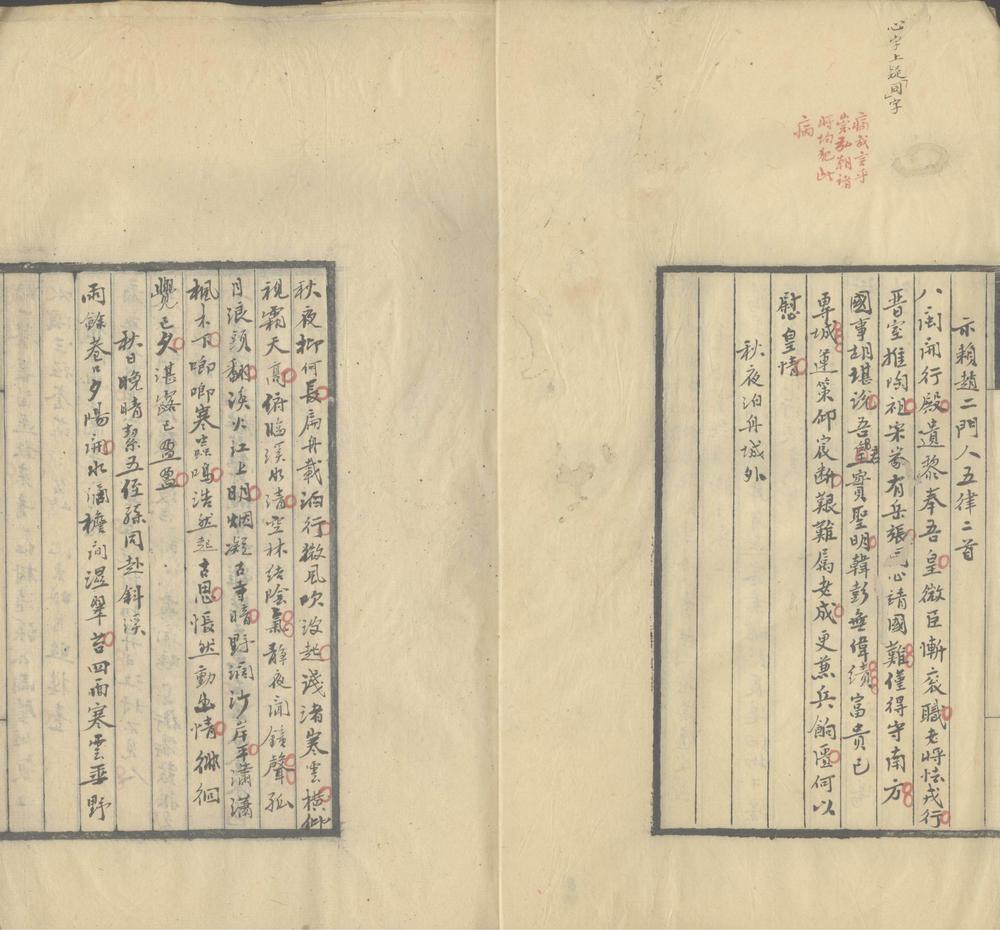 心字上疑同字
痛哉言乎
崇弘朝諸
時均犯此
病
示賴趙二門人五律二首
八閩開行殿遺黎奉吾皇微臣慚袞職老將怯戎行
晋室推陶祖宋家有岳張元心請國難僅得守南方
國事胡堪說吾君實聖明韓彭無偉績富貴已
專城運策仰宸断艱難属老成更兼兵餉匱何以
慰皇情
秋夜泊舟城外
秋夜抑何長扁舟載泊行微風吹波起淺渚寒雲橫仰
視霜天高俯臨溪水清空林結陰氣静夜聞鐘聲孤
月浪頭翻漁火江上明烟凝古寺暗野濶沙岸平瀟瀟
楓木下唧唧寒蟲鳴浩然起古思悵然動幽情徘徊
覺已夕湛露已盈盈
秋日晚晴絜五侄孫同赴斜溪
雨餘巷口夕陽開水滴檐間濕翠苔四面寒雲垂野